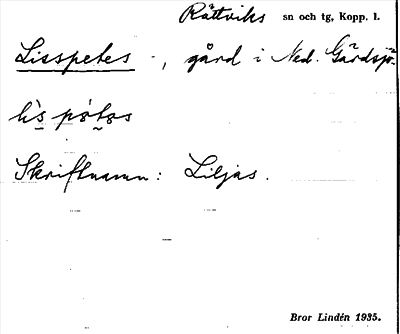 Rättviks sn och tg, Kopp. l.
Lisspetes -, gård i Ned. Gärdsjö.
lìs pó̀tǝs
Skriftnamn: Liljas.
Bror Lindén 1935.